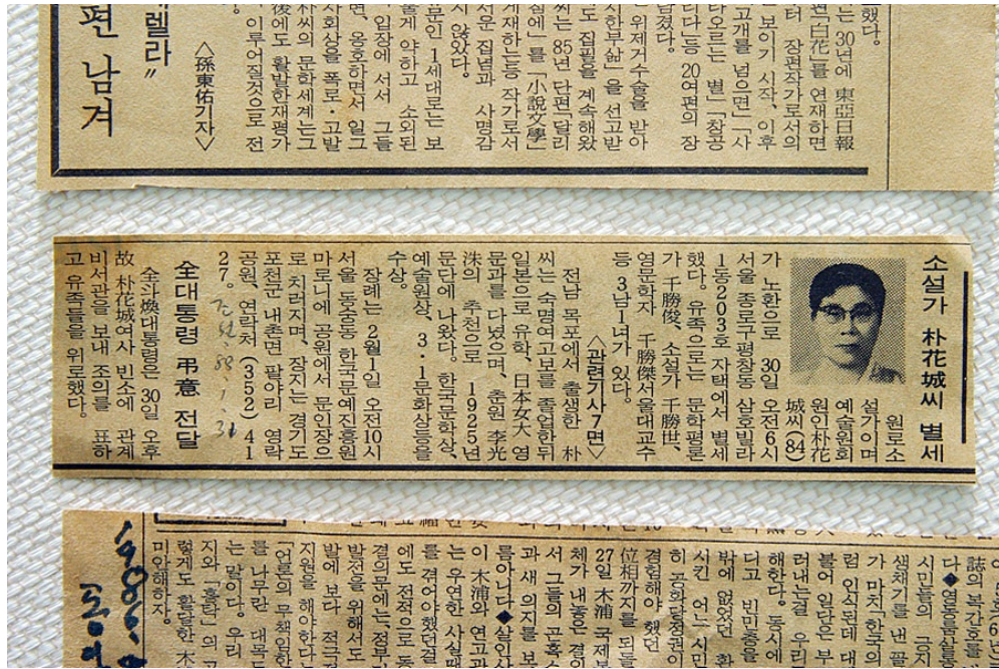 했다.
는 30년에 東亞日報
편「白花」를 연재하면
보이기 시작, 이후
터 장편작가로서의
고개를 넘으면」「사
타오르는 별」「창공
리다」등 20여편의 장
남겼다.
위제거수술을 받아
시한부삶」을 선고받
도 집필을 계속해왔
씨는 85년 단편「달리
침에」를 「小說文學」
게재하는등 작가로서
서운 집념과 사명감
지 않았다.
문인 1세대로는 보
물게 약하고 소외된
입장에 서서 그들
면, 옹호하면서 일그
사회상을 폭로·고발
朴씨의 문학세계는그
後에도 활발한재평가
이루어질것으로 전
〈孫東佑기자〉
렐라”
편 남겨
소설가 朴花城씨 별세
원로소
설가이며
예술원회
원인朴花
城씨(84)
가 노환으로 30일 오전6시
서울 종로구평창동 삼호빌라
1동203호 자택에서 별세
했다. 유족으로는 문학평론
가 千勝俊, 소설가 千勝世,
영문학자 千勝傑서울대교수
등 3남1녀가 있다.
〈관련기사7면〉
전남 목포에서 출생한 朴
씨는 숙명여고보를 졸업한뒤
일본으로 유학, 日本女大 영
문과를 다녔으며, 춘원 李光
洙의 추천으로 1925년
문단에 나왔다. 한국문학상,
예술원상, 3·1문화상등을
수상.
장례는 2월1일 오전10시
서울 동숭동 한국문예진흥원
마로니에 공원에서 문인장으
로 치러지며, 장지는 경기도
포천군 내촌면 팔야리 영락
공원. 연락처 (352) 41
27.
88. 1. 31
全대통령 弔意 전달
全斗煥대통령은 30일 오후
故 朴花城여사 빈소에 관계
비서관을 보내 조의를 표하
고 유족들을 위로했다.
誌의 복간호를
다◆영동률남살
시민들의 긍
생채기를 낸 꼴
가 마치「한국의
럼 인식된데 대
불어 일단은 부
러내는걸 우리
해한다. 동시에
디고 빈민층을
밖에 없었던 환
시킨 어느 시민
경험해야 했던
位相까지를 되
27일 木浦 국제
체가 내놓은 결의
서 그들의 곤혹스
과 새 의지를 보
름아니다◆살인사
이 木浦와 연고과
는 우연한 사실때
를 겪어야했던걸
에도 전적으로 동
결의문에는 정부
발에 보다 적극
발전을 위해서도
지원을 해야한다
「언론의 무책임한
를 나무란 대목도
는 말이다. 우리
지와 「혹란」의 고
렇게도 활달한木
미안해하자.